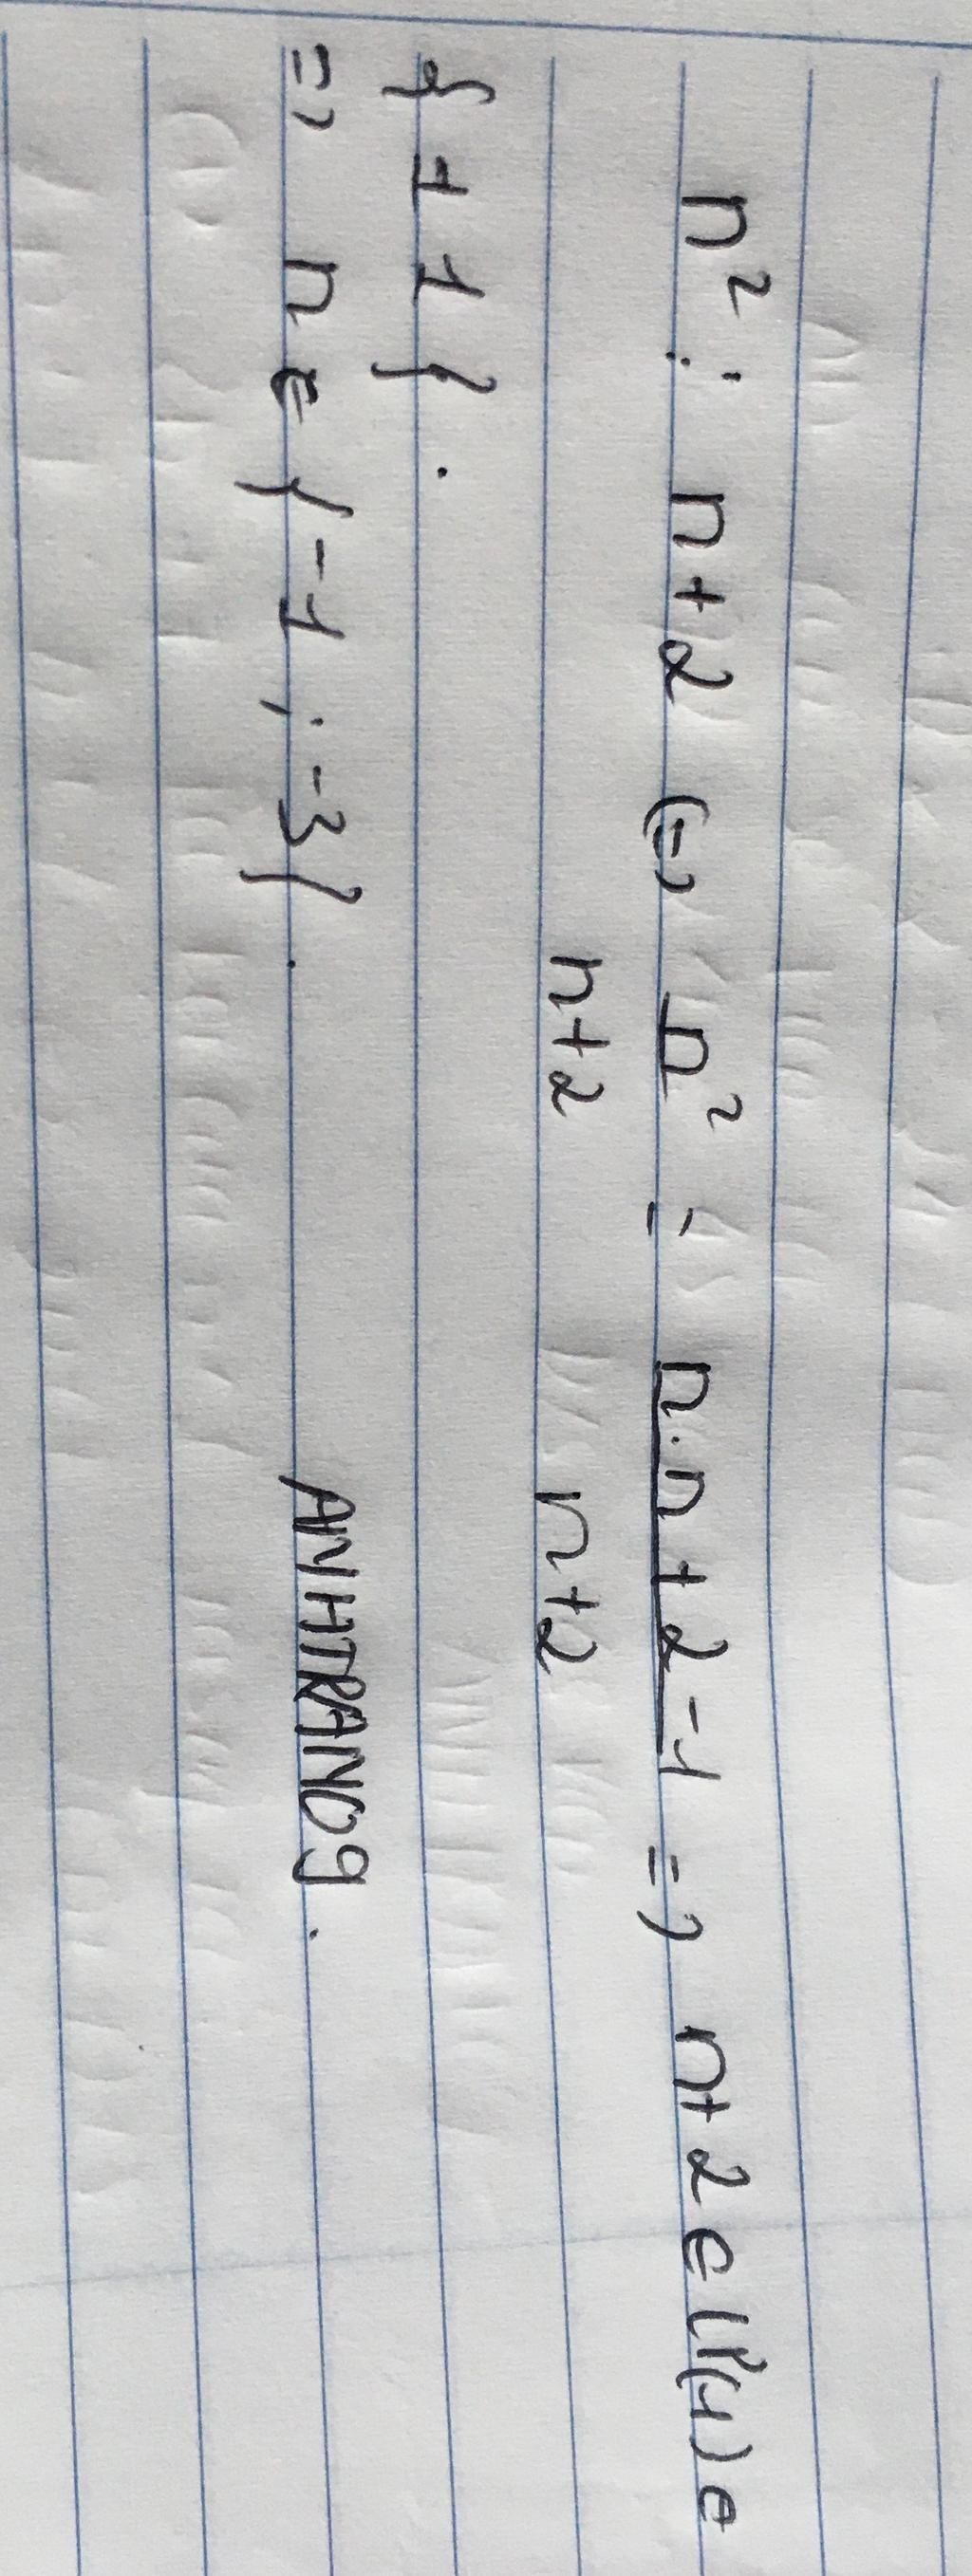 n² ⋮ n+2 (=) n² = n.n+2-1 => n+2 ∈ Ư(1) ∈
n+2 n+2
{±1}.
=> n ∈ {-1; -3}.
ANHTRAN09.